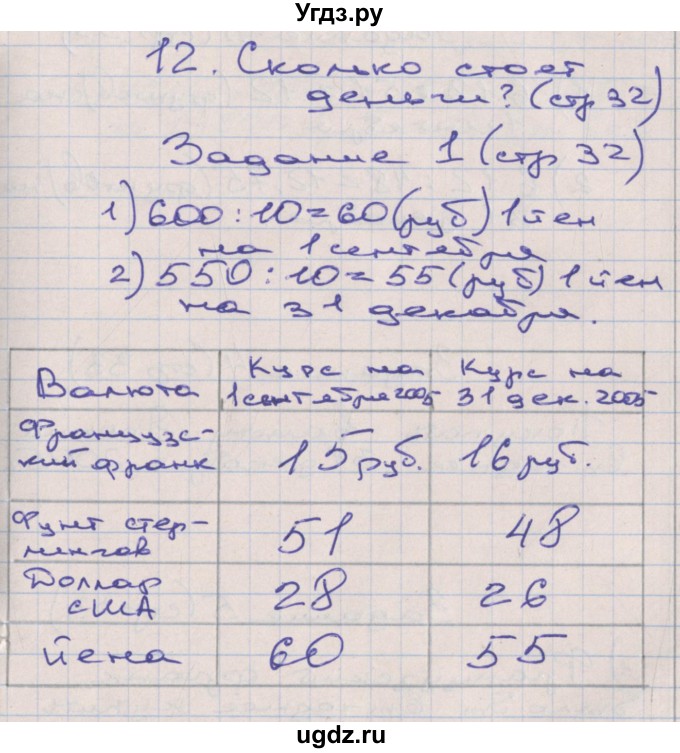 Угдз.ру
12. Сколько стоят
деньги? (стр 32)
Задание 1 (стр 32)
1) 600 : 10 = 60 (руб) 1 йен
на 1 сентября
2) 550 : 10 = 55 (руб) 1 йен
на 31 декабря.
Валюта
Курс на
1 сентября 2005
Курс на
31 дек. 2005
Французс-
кий франк
15 руб.
16 руб.
Фунт стер-
лингов
51
48
Доллар
США
28
26
Йена
60
55
ugdz.ru